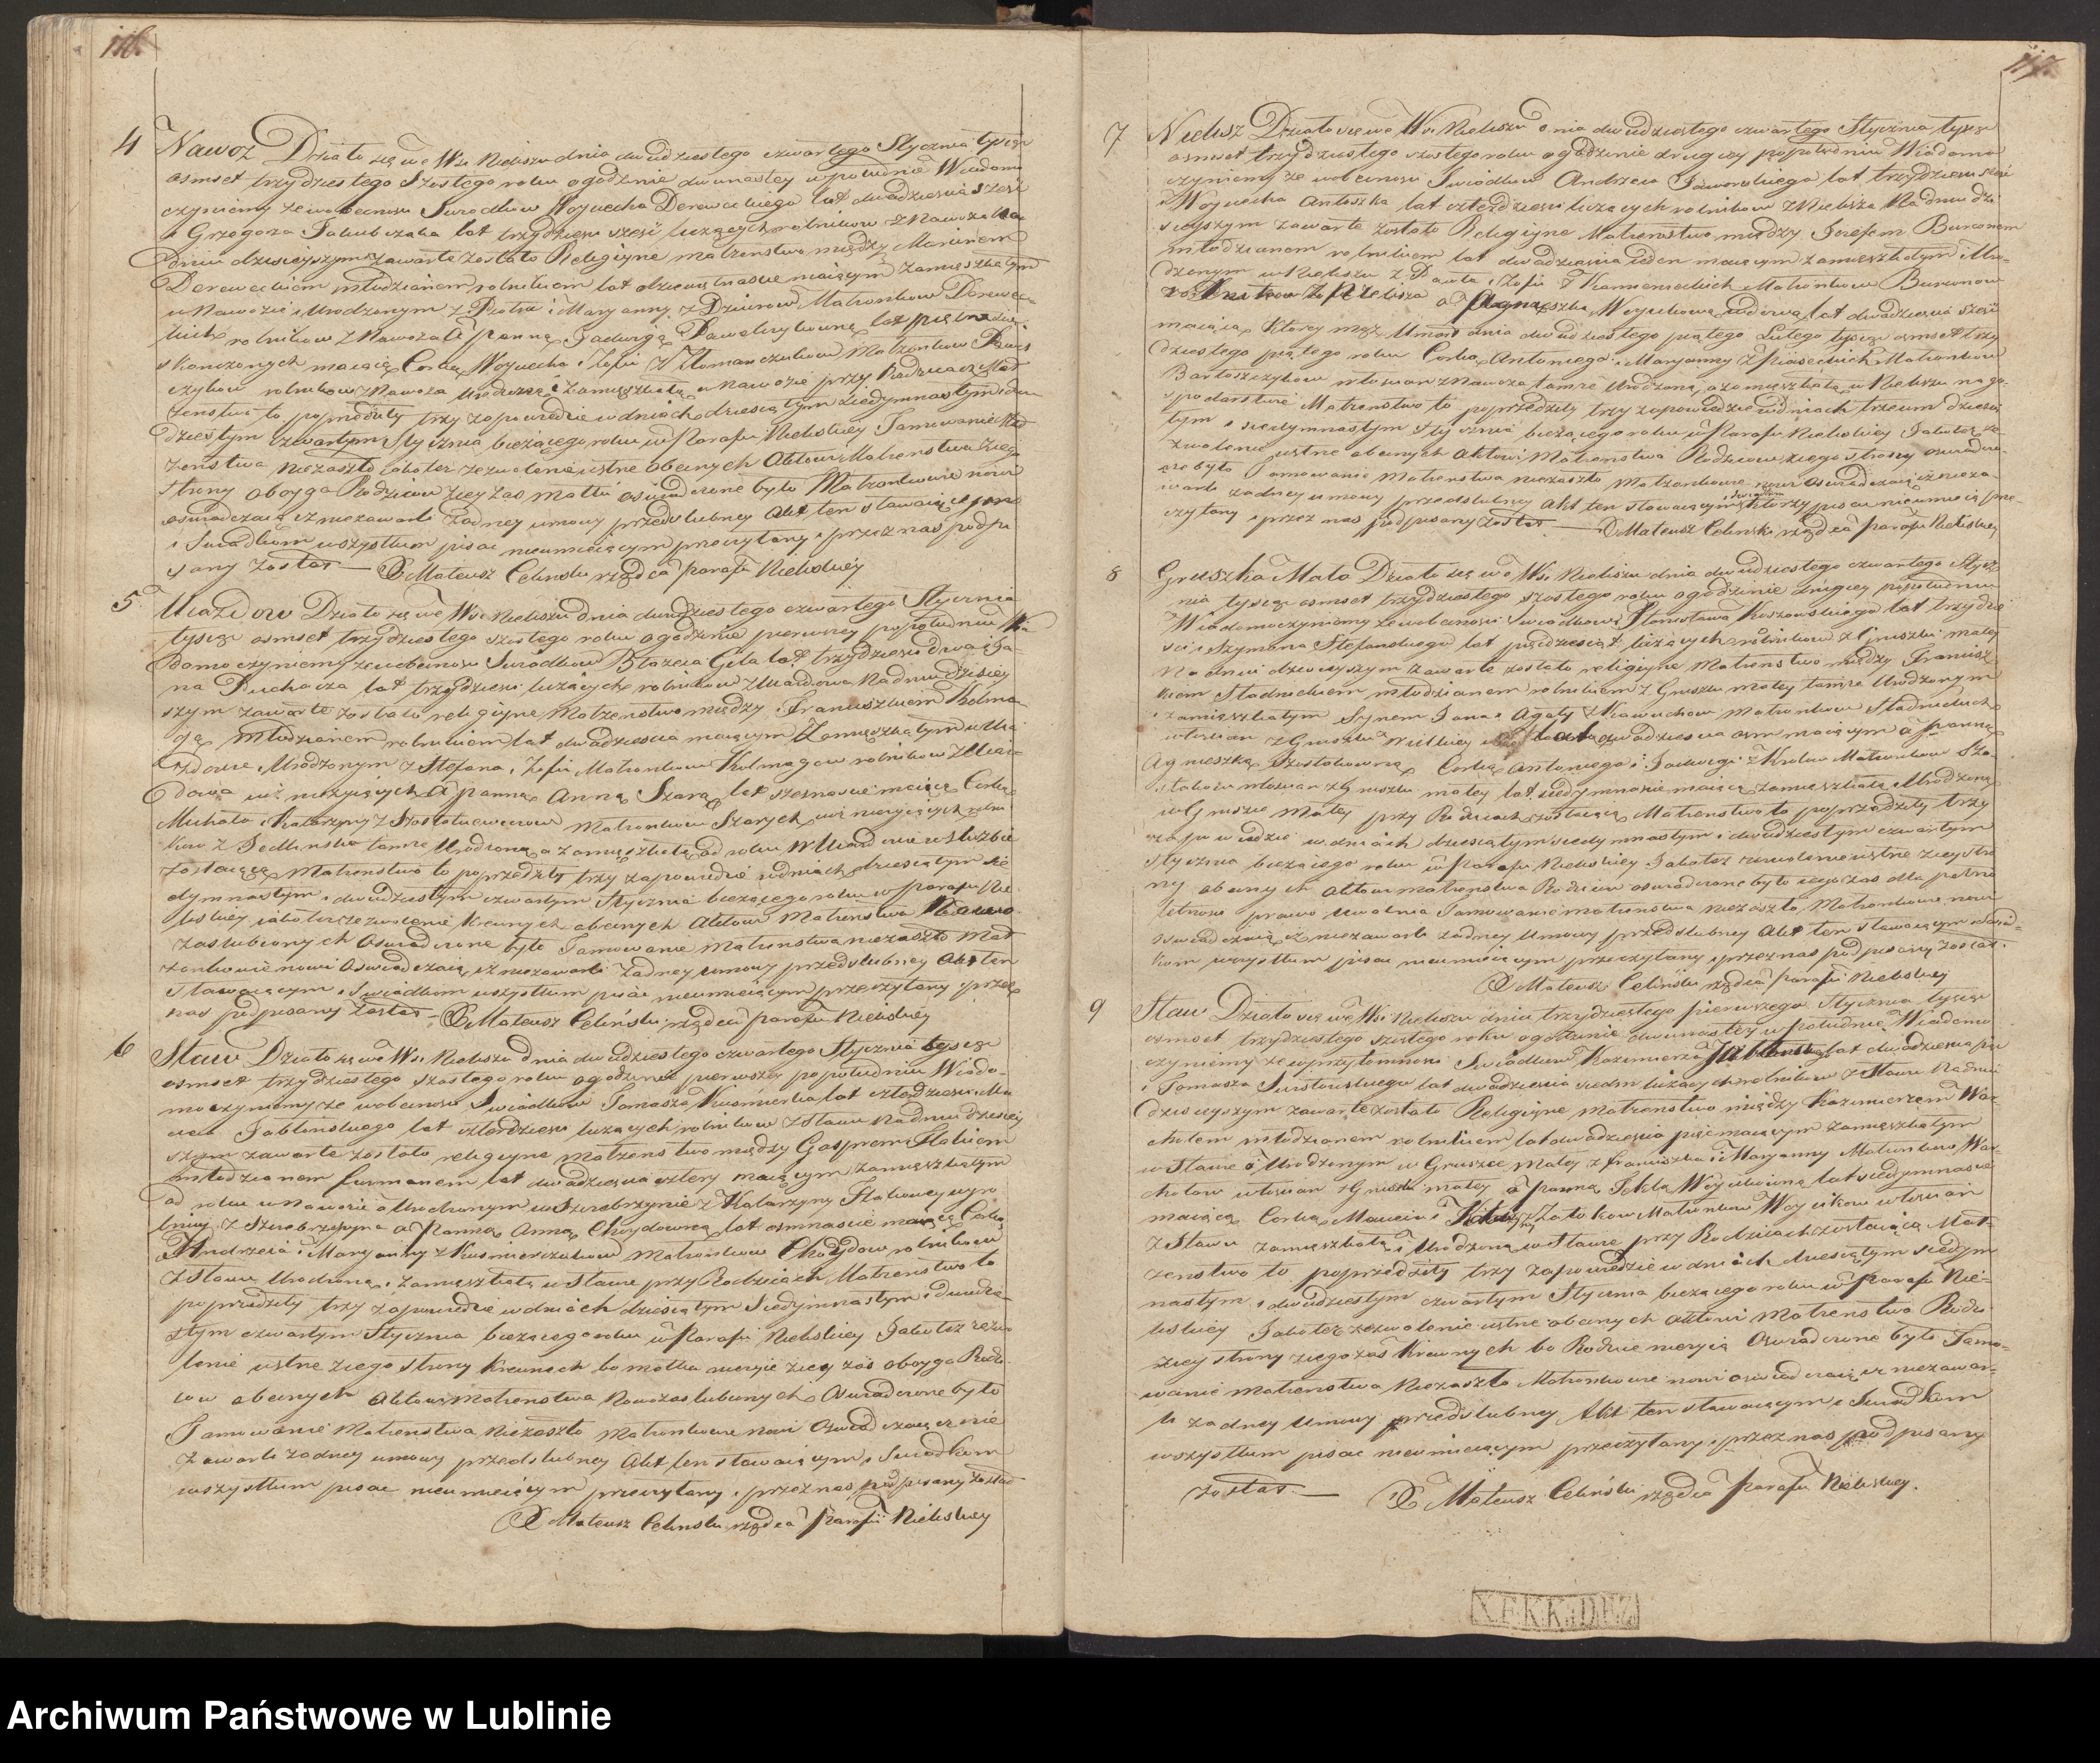 116.
4 Nawoz Działo się we Wsi Nieliszu dnia dwudziestego czwartego Stycznia tysiąc
osmset trzydziestego Szóstego roku o godzinie dwunastey w południe Wiadomo
czyniemy że w obecnosci Swiadków Woyciecha Derewieckiego lat dwadziescia szesć
i Grzegorza Jakubczaka lat trzydziesci szesć liczących rolników z Nawoza Na
dniu dzisieyszym zawarte zostało Religijne małzenstwo między Marcinem
Derewieckiem młodzianem rolnikiem lat dziewiętnascie maiącym zamieszkałym
w Nawozie i Urodzonym z Piotra i Maryanny z Dziurów Małzonków Derewiec-
kich rolników z Nawoza A Panną Jadwigą Pawełczykowną lat piętnascie
skonczonych maiącą Corką Woyciecha i Zofii z Małzonków Paweł
czyków rolników z Nawoza urodzoną i zamieszkałą w Nawozie przy Rodzicach Mał
zenstwo to poprzedziły trzy zapowiedzie w dniach dziesiątym siedymnastym i dwu
dziestym czwartym Stycznia bieżącego roku w Parafii Nieliskiey Tamowanie Mał
żenstwa niezaszło iakoteż zezwolenie ustne obecnych Aktowi Małzenstwa z iego
strony oboyga Rodziców z iey zas matki oswiadczone było Małzonkowie nowi
oswiadczaią iż niezawarli żadney umowy przedslubney Akt ten stawaiącym
i Swiadkom wszystkim pisac nieumieiącym przeczytany i przez nas podpi
sany został — X Mateusz Celinski rządca Parafii Nieliskiey
5 Uiazdow Działo się we Wsi Nieliszu dnia dwudziestego czwartego Stycznia
tysiąc osmset trzydziestego szostego roku o godzinie pierwszey popołudniu Wia
domo czyniemy że w obecnosci Swiadków Błazeia Gila lat trzydziesci dwa i Ja-
na Puchacza lat trzydziesci liczących rolników z Uiazdowa Na dniu dzisiey
szym zawarte zostało religijne Małzenstwo między Franciszkiem Kolma-
gą Młodzianem rolnikiem lat dwadziescia maiącym Zamieszkałym w Uia
zdowie Urodzonym z Stefana i Zofii Małzonków Kolmagow rolników z Uiaz-
dowa iuż nieżyiących A Panną Anną Szarą lat szesnascie maiącą Corką
Michała i Katarzyny z Małzonkow Szarych iuż nieżyiących rolni
kow z tamże Urodzoną a zamieszkałą od roku w Uiazdowie w służbie
zostaiącą Małzenstwo to poprzedziły trzy zapowiedzie w dniach dziesiątym sie
dymnastym i dwudziestym czwartym Stycznia bieżącego roku w Parafii Nie-
liskiey iakoteż zezwolenie krewnych obecnych Aktowi Małzenstwa Nowo
zaslubionych oswiadczone było Tamowanie Małzenstwa niezaszło Mał
zonkowie nowi oswiadczaią iż niezawarli żadney umowy przedslubney Akt ten
stawaiącym i Swiadkom wszystkim pisac nieumieiącym przeczytany i przez
nas podpisany został — X Mateusz Celiński rządca Parafii Nieliskiey
6 Staw Działo się we Wsi Nieliszu dnia dwudziestego czwartego Stycznia tysiąc
osmset trzydziestego szostego roku o godzinie pierwszey popołudniu Wiado-
mo czyniemy że w obecnosci Swiadków Tomasza Kusmierka lat czterdziesci i Ma
cieia Jabłonskiego lat czterdziesci liczących rolników z Stawu Na dniu dzisiey
szym zawarte zostało religijne małzenstwo między Gasprem
młodzianem furmanem lat dwadziescia cztery maiącym zamieszkałym
od roku w Nawozie a Urodzonym w Szczebrzeszynie z Katarzyny wyro
bnicy z Szczebrzeszyna a Panną Anną Chodydowną lat osmnascie maiącą Corką
Andrzeia i Maryanny z Kusmierczuków Małzonkow Chodydow rolników
z Stawu Urodzoną i zamieszkałą w Stawie przy Rodzicach Małzenstwo to
poprzedziły trzy zapowiedzie w dniach dziesiątym Siedymnastym i dwudzie-
stym czwartym Stycznia bieżącego roku w Parafii Nieliskiey Jakoteż zezwo
lenie ustne z iego strony krewnych bo matka nieżyie z iey zas oboyga Rodzi
cow obecnych Aktowi Małzenstwa Nowozaslubionych Oswiadczone było
Tamowanie Małzenstwa Niezaszło Małzonkowie nowi Oswiadczaią iż nie
zawarli żadney umowy przedslubney Akt ten stawaiącym i Swiadkom
wszystkim pisac nieumieiącym przeczytany i przez nas podpisany został
X Mateusz Celinski rządca Parafii Nieliskiey
117.
7 Nielisz Działo się we Wsi Nieliszu dnia dwudziestego czwartego Stycznia tysiąc
osmset trzydziestego szostego roku o godzinie drugiey popołudniu Wiadomo
czyniemy że w obecnosci Swiadkow Andrzeia Jaworskiego lat trzydziesci szesć
i Woyciecha Antoszka lat czterdziesci liczących rolników z Nielisza Na dniu dzi
sieyszym zawarte zostało Religijne Małzenstwo między Jozefem
młodzianem rolnikiem lat dwadziescia ieden maiącym zamieszkałym i Uro-
dzonym w Nieliszu z Pawła i Zofii z Kamienieckich Małzonkow
rolników z Nielisza a Agnieszką Woycikową wdową lat dwadziescia szesć
maiącą Ktorey mąż Umarł dnia dwudziestego piątego Lutego tysiąc osmset trzy
dziestego piątego roku Corką Antoniego i Maryanny z Piaseckich Małzonkow
Bartoszczykow włoscian z Nawoza tamże Urodzoną, a zamieszkałą w Nieliszu na go-
spodarstwie Małzenstwo to poprzedziły trzy zapowiedzie w dniach trzecim dziesią
tym i siedymnastym Stycznia bieżącego roku w Parafii Nieliskiey Jakoteż ze-
zwolenie ustne obecnych Aktowi Małzenstwa Rodziców z iego strony oswiadczo-
ne było Tamowanie małzenstwa niezaszło Małzonkowie nowi oswiadczaią iż nieza-
warli żadney umowy przedslubney Akt ten stawaiącym i swiadkom ktorzy pisac nieumieią prze-
czytany i przez nas podpisany został — X Mateusz Celinski rządca Parafii Nieliskiey
8 Gruszka Mała Działo się we Wsi Nieliszu dnia dwudziestego czwartego Stycz
nia tysiąc osmset trzydziestego szostego roku o godzinie drugiey popołudniu
Wiadomo czyniemy że w obecnosci Swiadków Stanisława Koszowskiego lat trzydzie
sci i Szymona Stefanskiego lat pięćdziesiąt liczących rolników z Gruszki małey
Na dniu dzisieyszym zawarte zostało religijne Małzenstwo między Francisz
kiem Stadnickiem młodzianem rolnikiem z Gruszki małey tamże Urodzonym
i zamieszkałym Synem Jana i Agaty z Małzonkow Stadnickich
włoscian z Gruszki Wielkiey lat dwadziescia osm maiącym a Panną
Agnieszką Szostakowną Corką Antoniego i Jadwigi z Krolow Małzonkow Szo-
stakow włoscian z Gruszki małey lat siedymnascie maiącą zamieszkałą i Urodzoną
w Gruszce Małey przy Rodzicach zostaiącą Małzenstwo to poprzedziły trzy
zapowiedzie w dniach dziesiątym siedymnastym i dwudziestym czwartym
Stycznia bieżącego roku w Parafii Nieliskiey Jakoteż zezwolenie ustne z iey stro
ny obecnych Aktowi małzenstwa Rodziców oswiadczone było iego zas dla pełno
letnosci prawo uwalnia Tamowanie małzenstwa niezaszło, Małzonkowie nowi
oswiadczaią iż niezawarli żadney Umowy przedslubney Akt ten stawaiącym i Swiad-
kom wszystkim pisac nieumieiącym przeczytany i przez nas podpisany został.
X Mateusz Celiński rządca Parafii Nieliskiey
9 Staw Działo się we Wsi Nieliszu dnia trzydziestego pierwszego Stycznia tysiąc
osmset trzydziestego szostego roku o godzinie dwunastey w południe Wiadomo
czyniemy że w przytomnosci Swiadkow Kazimierza Jabłonskiego lat dwadziescia pięć
i Tomasza lat dwadziescia siedm liczących rolników z Stawu Na dniu
dzisieyszym zawarte zostało Religijne małzenstwo między Kazimierzem War-
chołem młodzianem rolnikiem lat dwadziescia pięć maiącym zamieszkałym
w Stawie a Urodzonym w Gruszce Małey z Franciszka i Maryanny Małzonkow War-
chołow włoscian z Gruszki małey a Panną Teklą Woycikowną lat siedymnascie
maiącą Corką Marcina i Małzonkow Woycikow włoscian
z Stawu zamieszkałą i Urodzoną w Stawie przy Rodzicach zostaiącą Mał-
zenstwo to poprzedziły trzy zapowiedzie w dniach dziesiątym siedym
nastym i dwudziestym czwartym Stycznia bieżącego roku w Parafii Nie-
liskiey Jakoteż zezwolenie ustne obecnych aktowi Małzenstwa Rodzi
z iey strony z iego zas Krewnych bo Rodzice nieżyią Oswiadczone było Tamo-
wanie Małzenstwa Niezaszło Małzonkowie nowi oswiadczaią iż niezawar-
li żadney Umowy przedslubney Akt ten stawaiącym i Swiadkom
wszystkim pisac nieumieiącym przeczytany i przez nas podpisany
został. — X Mateusz Celiński rządca Parafii Nieliskiey.
X.F.K.K.i.D.F.Z.
Archiwum Państwowe w Lublinie